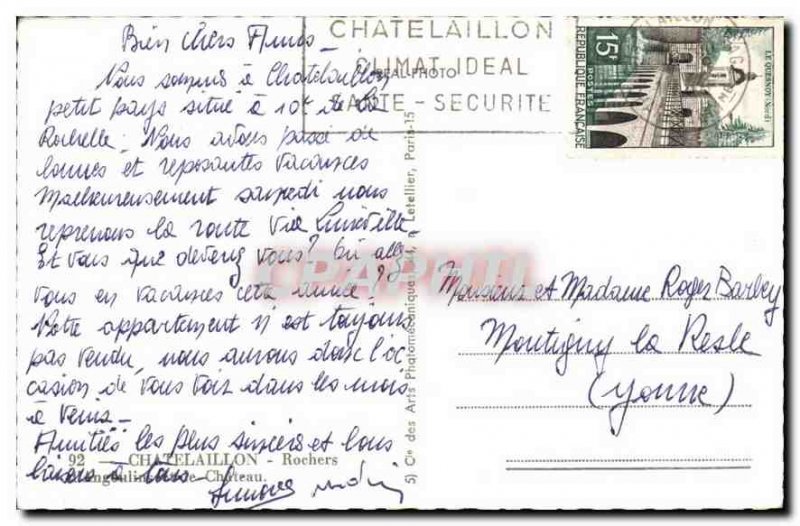 Bien chers Amis -
Nous sommes à Chatelaillon,
petit pays situé à 10k de la
Rochelle. Nous avons passé de
bonnes et reposantes vacances
Malheureusement samedi nous
reprenons la route via Lunéville -
Et vous que devenez vous? Où allez
vous en vacances cette année?
Notre appartement n'est toujours
pas vendu, nous aurons donc l'oc
casion de vous voir dans les mois
à venir -
Amitiés les plus sincères et bons
baisers à tous -
92 - CHATELAILLON - Rochers
Château.
5) Cie des Arts Photomécaniques Letellier, Paris-15
REAL-PHOTO
CHATELAILLON
CLIMAT IDEAL
SANTE - SECURITE
CHATELAILLON
15F
POSTES
REPUBLIQUE FRANÇAISE
LE QUESNOY (Nord)
CPAPHIL
Monsieur et Madame Roger Barbey
Montigny la Resle
(Yonne)